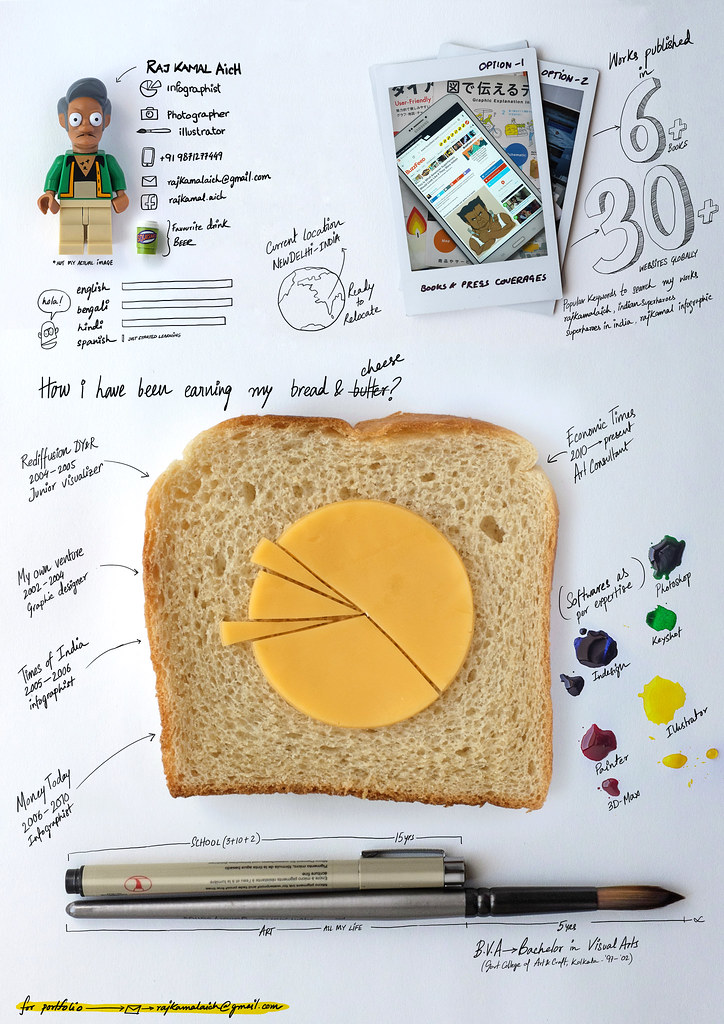 RAJ KAMAL AICH
infographist
Photographer
illustrator
+91 9871277449
rajkamalaich@gmail.com
rajkamal.aich
Favourite drink
BEER
*NOT MY ACTUAL IMAGE
hola!
english
bengali
hindi
spanish I JUST STARTED LEARNING
Current location
NEW DELHI-INDIA
Ready
to
Relocate
OPTION-1
OPTION-2
User-Friendly
図で伝えるデ
Graphic Explanation
BuzzFeed
BOOKS & PRESS COVERAGES
Works published
in
6+
BOOKS
30+
WEBSITES GLOBALLY
Popular keywords to search my works
rajkamalaich, indian superheroes
superheroes in india, rajkamal infographic
How i have been earning my bread & butter?
cheese
Rediffusion DY&R
2004-2005
Junior visualizer
My own venture
2002-2004
Graphic designer
Times of India
2005-2006
infographist
Money Today
2006-2010
Infographist
Economic Times
2010→present
Art Consultant
(Softwares as
per expertise)
Photoshop
Keyshot
Indesign
Illustrator
Painter
3D-Max
SCHOOL (3+10+2)
15yrs
ART
ALL MY LIFE
5yrs
∝
B.V.A→Bachelor in Visual Arts
(Govt College of Art & Craft, Kolkata-'97-'02)
for portfolio → rajkamalaich@gmail.com